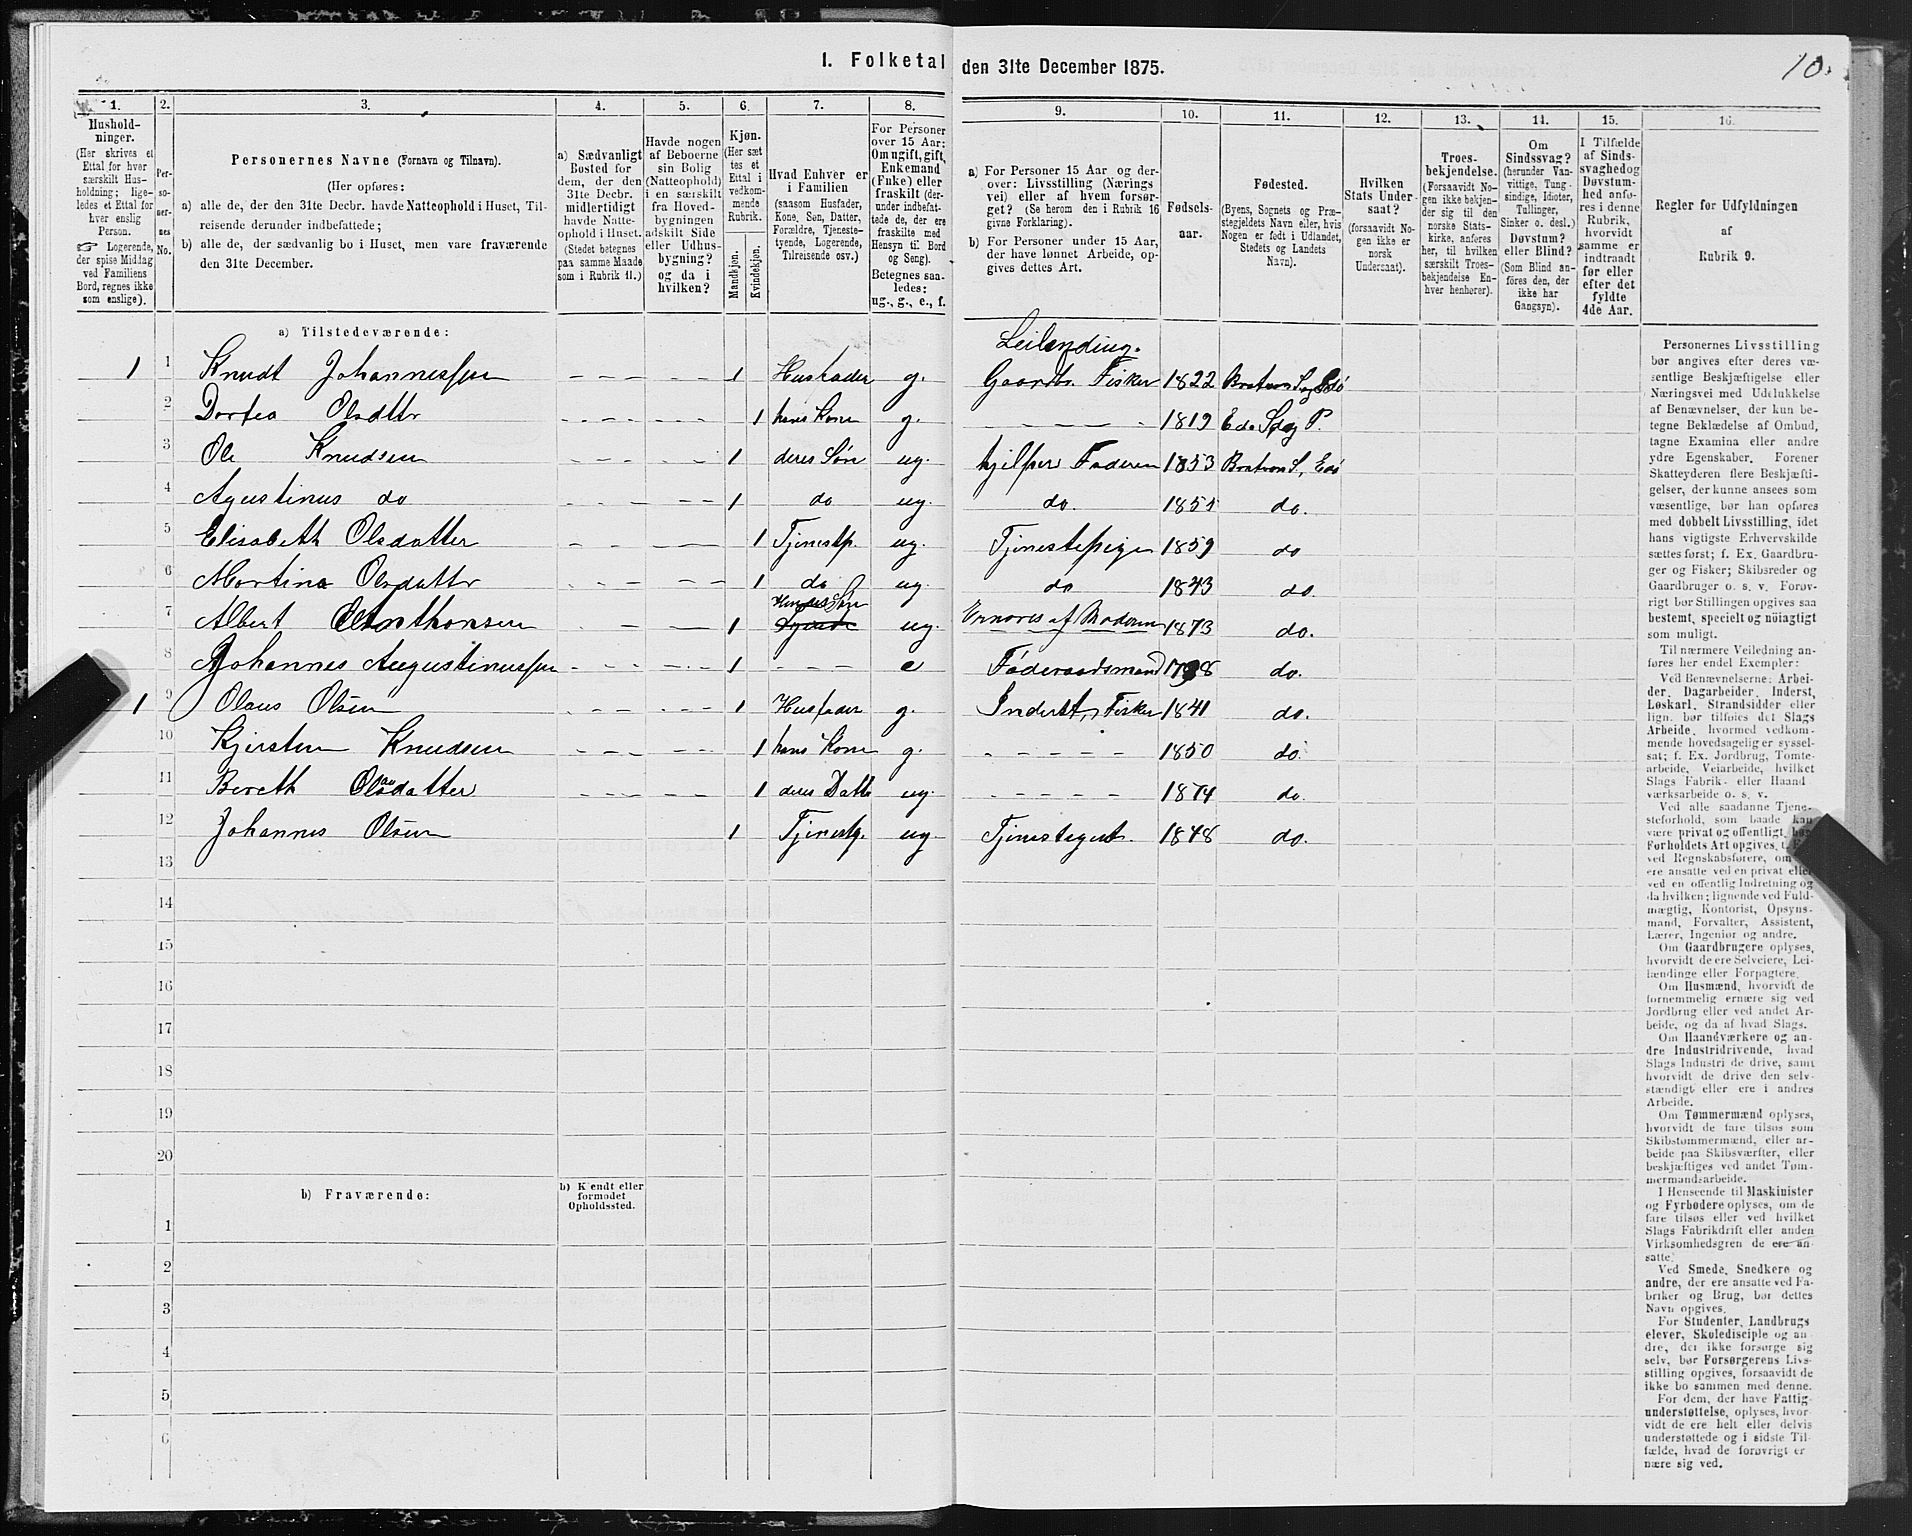 1. Folketal den 31te December 1875.
10.
1. 2. 3. 4. 5. 6. 7. 8. 9. 10. 11. 12. 13. 14. 15. 16.
Hushold-
ninger.
(Her skrives et
Ettal for hver
særskilt Hus-
holdning; lige-
ledes et Ettal for
hver enslig
Person.
☞ Logerende,
der spise Middag
ved Familiens
Bord, regnes ikke
som enslige).
Per-
so-
ner-
nes
No.
Personernes Navne (Fornavn og Tilnavn).
(Her opføres:
a) alle de, der den 31te Decbr. havde Natteophold i Huset, Til-
reisende derunder indbefattede;
b) alle de, der sædvanlig bo i Huset, men vare fraværende
den 31te December.
a) Sædvanligt
Bosted for
dem, der den
31te Decbr.
midlertidigt
havde Natte-
ophold i Huset.
(Stedet betegnes
paa samme Maade
som i Rubrik 11.)
Havde nogen
af Beboerne
sin Bolig
(Natteophold)
i en særskilt
fra Hoved-
bygningen
adskilt Side
eller Udhus-
bygning?
og da i
hvilken?
Kjøn.
(Her sæt
tes et
Ettal i
vedkom-
mende
Rubrik.
Mandkjøn.
Kvindekjøn.
Hvad Enhver er
i Familien
(saasom Husfader,
Kone, Søn, Datter,
Forældre, Tjeneste-
tyende, Logerende,
Tilreisende osv.)
For Personer
over 15 Aar:
Om ugift, gift,
Enkemand
(Enke) eller
fraskilt (der-
under indbefat-
tede de, der ere
fraskilte med
Hensyn til Bord
og Seng).
Betegnes saa-
ledes:
ug., g., e., f.
a) For Personer 15 Aar og der-
over: Livsstilling (Nærings
vei) eller af hvem forsør-
get? (Se herom den i Rubrik 16
givne Forklaring).
b) For Personer under 15 Aar,
der have lønnet Arbeide, op-
gives dettes Art.
Fødsels-
aar.
Fødested.
(Byens, Sognets og Præ-
stegjeldets Navn eller, hvis
Nogen er født i Udlandet,
Stedets og Landets
Navn).
Hvilken
Stats Under-
saat?
(forsaavidt No-
gen ikke er
norsk
Undersaat).
Troes-
bekjendelse.
(Forsaavidt No-
gen ikke bekjen-
der sig til den
norske Stats-
kirke, anføres
her, til hvilken
særskilt Troes-
bekjendelse En-
hver henhører).
Om
Sindssvag?
(herunder Van-
vittige, Tung-
sindige, Idioter,
Tullinger,
Sinker o. desl.)
Døvstum?
eller Blind?
(Som Blind an-
føres den, der
ikke har
Gangsyn).
I Tilfælde
af Sinds-
svaghed og
Døvstum-
hed anfø-
res i denne
Rubrik,
hvorvidt
samme er
indtraadt
før eller
efter det
fyldte
4de Aar.
Regler for Udfyldningen
af
Rubrik 9.
a) Tilstedeværende:
Leilending.
1 1 Knudt Johannessen 1 Husfader g. Gaardbr. Fisker 1822
2 Dortea Olsdttr 1 hans Kone g. 1819 Edø S og P.
3 Ole Knudsen 1 deres Søn ug. hjelper Faderen 1853
4 Agustinus do 1 do ug. do. 1855 do.
5 Elisabeth Olsdatter 1 Tjenestp. ug. Tjenestepige 1859 do
6 Martina Olsdattr 1 do ug. do 1843 do.
7 Albert Anthonsen 1 Hendes Søn ug. Ernæres af Moderen 1873 do.
8 Johannes Augustinussen 1 e Føderaadsmand 1798 do.
1 9 Olaus Olsen 1 Husfader g. Inderst, Fisker 1841 do.
10 Kjersten Knudsen 1 hans Kone g. 1850 do.
11 Bereth Olausdatter 1 deres Dattr ug. 1874 do.
12 Johannes Olsen 1 Tjenestg. ug. Tjenestegut. 1848 do.
13
14
15
16
17
18
19
20
b) Fraværende:
b) Kjendt eller
formodet
Opholdssted.
1
2
3
4
5
6
Personernes Livsstilling
bør angives efter deres væ-
sentlige Beskjæftigelse eller
Næringsvei med Udelukkelse
af Benævnelser, der kun be-
tegne Beklædelse af Ombud,
tagne Examina eller andre
ydre Egenskaber. Forener
Skatteyderen flere Beskjæfti-
gelser, der kunne ansees som
væsentlige, bør han opføres
med dobbelt Livsstilling, idet
hans vigtigste Erhvervskilde
sættes først; f. Ex. Gaardbru-
ger og Fisker; Skibsreder og
Gaardbruger o. s. v. Forøv-
rigt bør Stillingen opgives saa
bestemt, specielt og nöiagtigt
som muligt.
Til nærmere Veiledning an-
føres her endel Exempler:
Ved Benævnelserne: Arbei-
der, Dagarbeider, Inderst,
Løskarl, Strandsidder eller
lign. bør tilføies det Slags
Arbeide, hvormed vedkom-
mende hovedsagelig er syssel-
sat; f. Ex. Jordbrug, Tomte-
arbeide, Veiarbeide, hvilket
Slags Fabrik- eller Haand
værksarbeide o. s. v.
Ved alle saadanne Tjene-
steforhold, som baade kan
være privat og offentligt, bør
Forholdets Art opgives,
ved Regnskabsførere, om
ere ansatte ved en privat eller
ved en offentlig Indretning og
da hvilken; lignende ved Fuld-
mægtig, Kontorist, Opsyns-
mand, Forvalter, Assistent,
Lærer, Ingeniør og andre.
Om Gaardbrugere oplyses,
hvorvidt de ere Selveiere, Lei-
lændinge eller Forpagtere.
Om Husmænd, hvorvidt de
fornemmelig ernære sig ved
Jordbrug eller ved andet Ar-
beide, og da af hvad Slags.
Om Haandværkere og an-
dre Industridrivende, hvad
Slags Industri de drive, samt
hvorvidt de drive den selv-
stændigt eller ere i andres
Arbeide.
Om Tømmermænd oplyses,
hvorvidt de fare tilsøs som
Skibstømmermænd, eller ar-
beide paa Skibsværfter, eller
beskjæftiges ved andet Tøm-
mermandsarbeide.
I Henseende til Maskinister
og Fyrbødere oplyses, om de
fare tilsøs eller ved hvilket
Slags Fabrikdrift eller anden
Virksomhedsgren de ere an-
satte.
Ved Smede, Snedkere og
andre, der ere ansatte ved Fa-
briker og Brug, bør dettes
Navn opgives.
For Studenter, Landbrugs
elever, Skoledisciple og an-
dre, der ikke forsørge sig
selv, bør Forsørgerens Livs-
stilling opgives, forsaavidt de
ikke bo sammen med denne.
For dem, der have Fattig-
understøttelse, oplyses, hvor-
vidt de ere helt eller delvis
understøttede og i sidste Til-
fælde, hvad de forøvrigt er
nære sig ved.